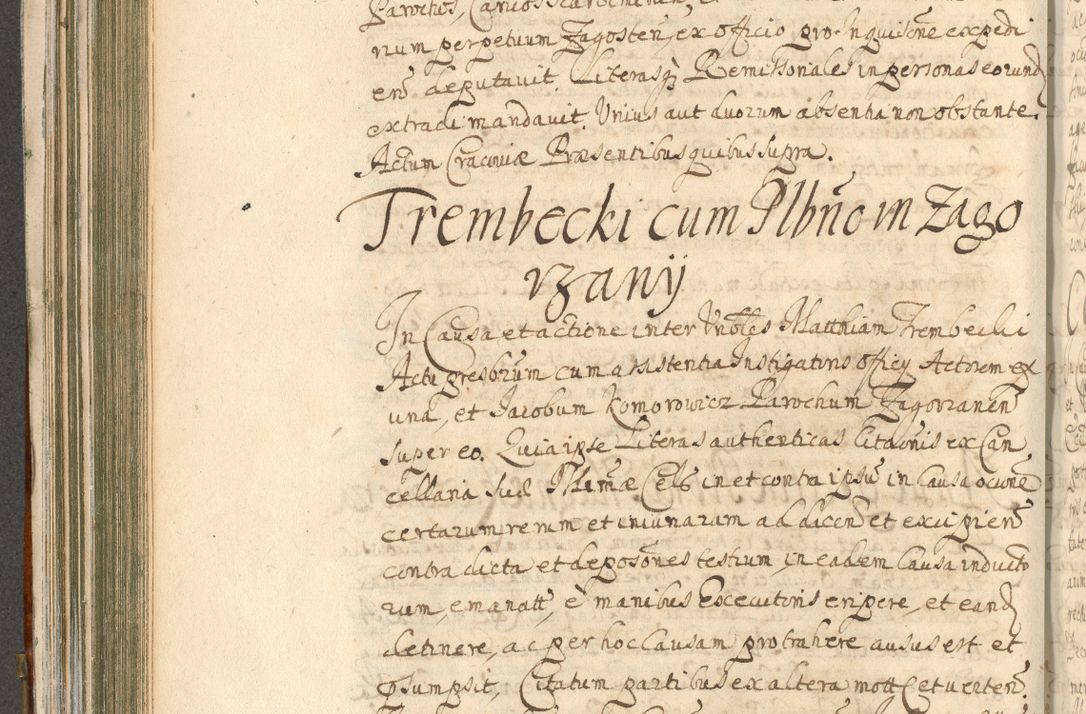 num perpetuum Zagosten, ex officio pro Inquisitione expedi
en deputavit. Literasq Remissoriales in personas eorund
extradi mandavit. Unius aut duorum absentia non obstante.
Actum Cracoviæ Præsentibus quibus supra.
Trembecki cum Plbno in Zago
rzany
In Causa et actione inter Vnobles Matthiam Trembecki
cum assistentia Instigatoris officy Actorem ex
una, et Jacobum Komorowicz Parochum Zagorzanen
super eo. Quia ipse Literas authenticas Citaonis ex Can
cellaria Sud Illmæ Cels in et contra ipsu in Causa ocione
certarum rerum et iniuriarum ad dicen et excipien
contra dicta et deposones testium, in eadem Causa inducto
rum, emanatt, e manibus Executoris eripere, et eand
detinere, ac per hoc Causam protrahere ausus est et
psumpsit, Citatum partibus ex altera